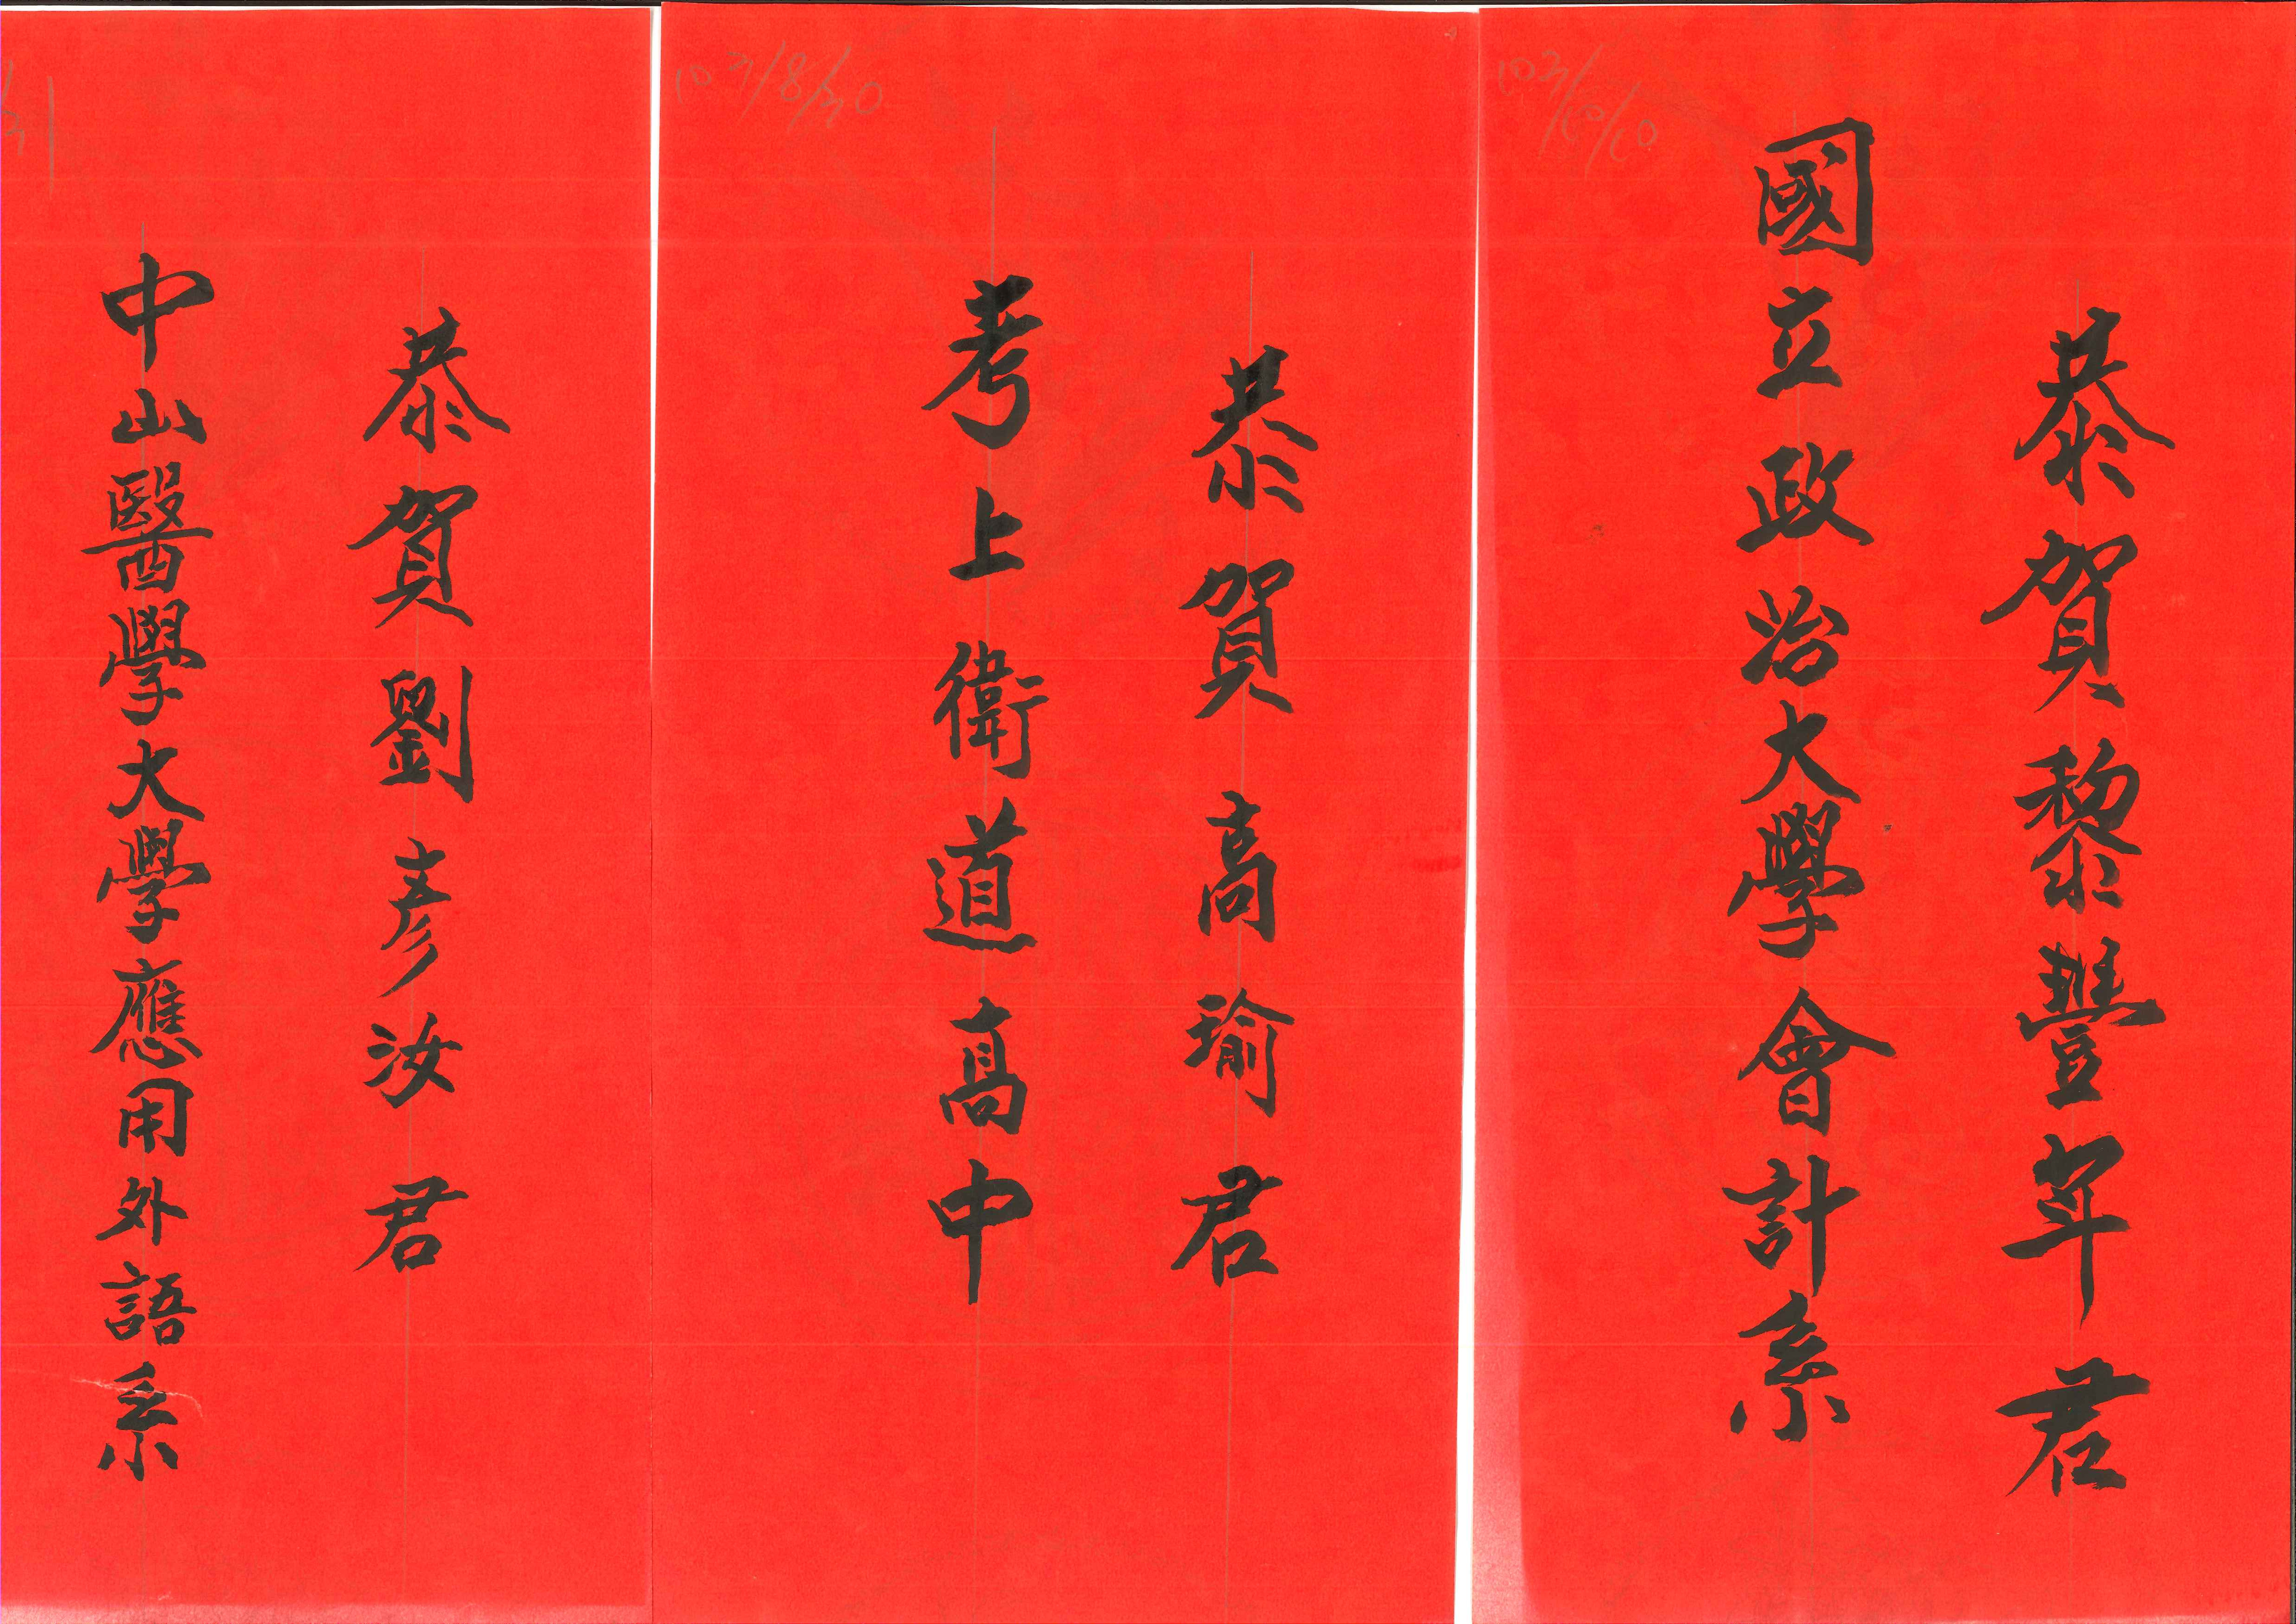 103/10/10
恭賀黎豐年君
國立政治大學會計系
103/8/30
恭賀高瑜君
考上衛道高中
恭賀劉彥汝君
中山醫學大學應用外語系